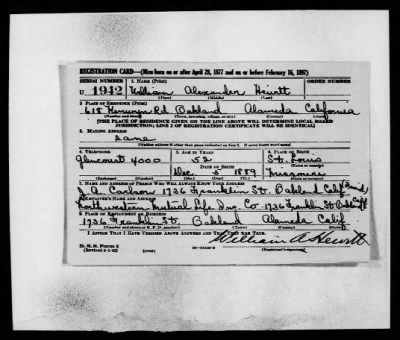 REGISTRATION CARD—(Men born on or after April 28, 1877 and on or before February 16, 1897)
SERIAL NUMBER 1. NAME (Print) ORDER NUMBER
U 1942 William Alexander Hewitt
(First) (Middle) (Last)
2. PLACE OF RESIDENCE (Print)
618 Kenwyn Rd Oakland Alameda California
(Number and street) (Town, township, village, or city) (County) (State)
[THE PLACE OF RESIDENCE GIVEN ON THE LINE ABOVE WILL DETERMINE LOCAL BOARD
JURISDICTION; LINE 2 OF REGISTRATION CERTIFICATE WILL BE IDENTICAL]
3. MAILING ADDRESS
Same
[Mailing address if other than place indicated on line 2. If same insert word same]
4. TELEPHONE 5. AGE IN YEARS 6. PLACE OF BIRTH
Glencourt 4000 52 St. Louis
DATE OF BIRTH (Town or county)
Dec 5 1889 Missouri
(Exchange) (Number) (Mo.) (Day) (Yr.) (State or country)
7. NAME AND ADDRESS OF PERSON WHO WILL ALWAYS KNOW YOUR ADDRESS
J. A. Carlson 1736 Franklin St. Oakland Calif
8. EMPLOYER'S NAME AND ADDRESS
Northwestern Mutual Life Ins. Co. 1736 Franklin St Oak Calif
9. PLACE OF EMPLOYMENT OR BUSINESS
1736 Franklin St. Oakland Alameda Calif
(Number and street or R. F. D. number) (Town) (County) (State)
I AFFIRM THAT I HAVE VERIFIED ABOVE ANSWERS AND THAT THEY ARE TRUE.
D. S. S. Form 1
(Revised 4-1-42) (over)
William A Hewitt